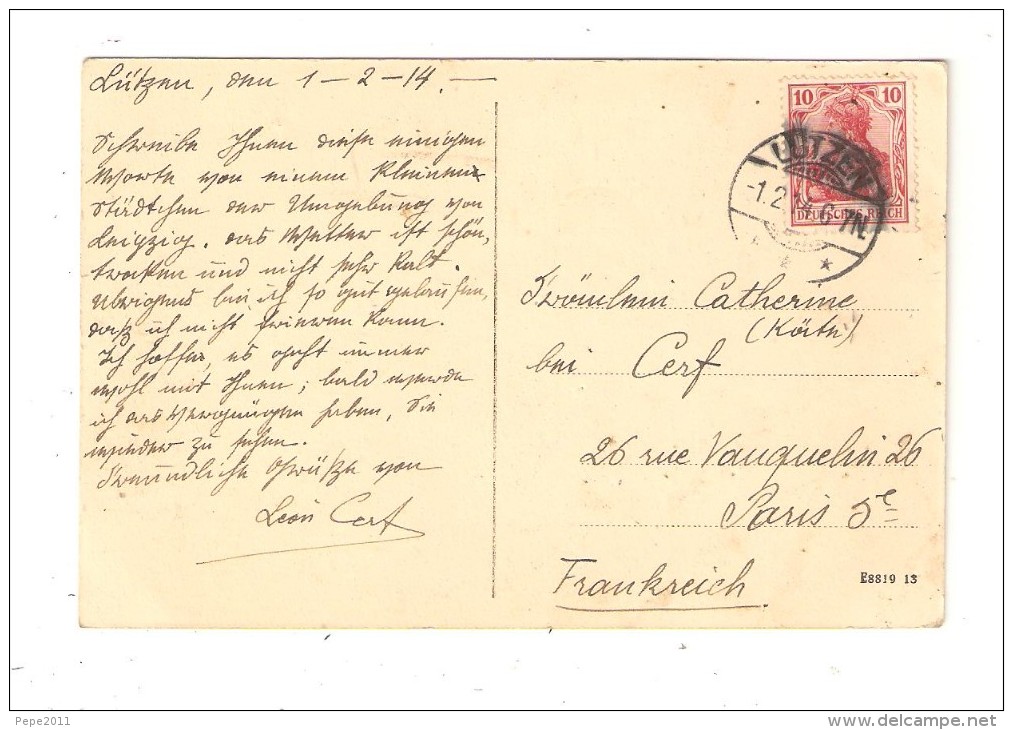 Lützen, den 1-2-14.
Schreibe Ihnen diese einigen
Worte von einem kleinen
Städtchen der Umgebung von
Leipzig. das Wetter ist schön,
trocken und nicht sehr kalt.
Übrigens bin ich so gut gelaufen,
daß ich nicht frieren kann.
Ich hoffe, es geht immer
wohl mit Ihnen; bald werde
ich das Vergnügen haben, Sie
wieder zu sehen.
Freundliche Grüße von
Léon Cerf
10 10
DEUTSCHES REICH
LÜTZEN
-1.2.14.6-7N.
* *
Fräulein Catherine
(Käthe)
bei Cerf
26 rue Vauquelin 26
Paris 5e
Frankreich
E8819 13
Pepe2011
www.delcampe.net